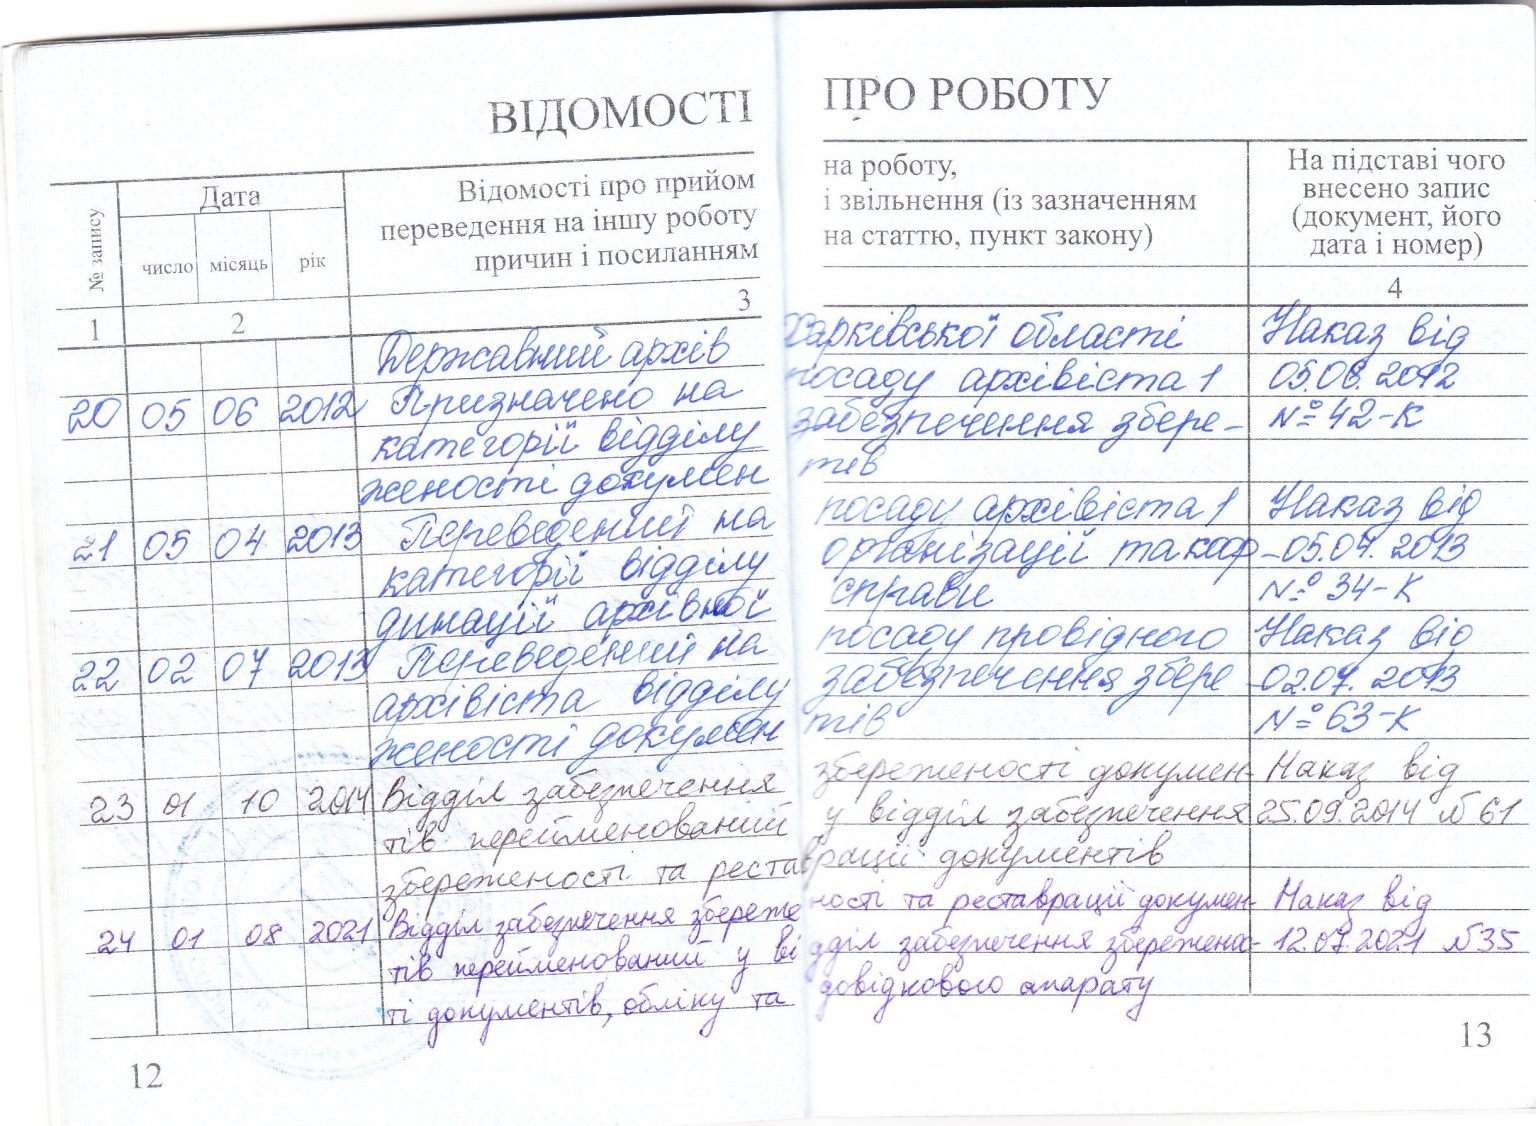 ВІДОМОСТІ ПРО РОБОТУ
№ запису
Дата
число місяць рік
Відомості про прийом на роботу,
переведення на іншу роботу і звільнення (із зазначенням
причин і посиланням на статтю, пункт закону)
На підставі чого
внесено запис
(документ, його
дата і номер)
1 2 3 4
Державний архів Харківської області Наказ від
20 05 06 2012 Призначено на посаду архівіста 1 05.06.2012
категорії відділу забезпечення збере- № 42-К
женості докумен тів
21 05 04 2013 Переведений на посаду архівіста 1 Наказ від
категорії відділу організації та коор- 05.04.2013
динації архівної справи № 34-К
22 02 07 2013 Переведений на посаду провідного Наказ від
архівіста відділу забезпечення збере 02.07.2013
женості докумен тів № 63-К
23 01 10 2014 Відділ забезпечення збереженості докумен- Наказ від
тів перейменований у відділ забезпечення 25.09.2014 №61
збереженості та реставрації документів
24 01 08 2021 Відділ забезпечення збереженості та реставрації докумен- Наказ від
тів перейменований у відділ забезпечення збережено- 12.07.2021 №35
ті документів, обліку та довідкового апарату
12 13